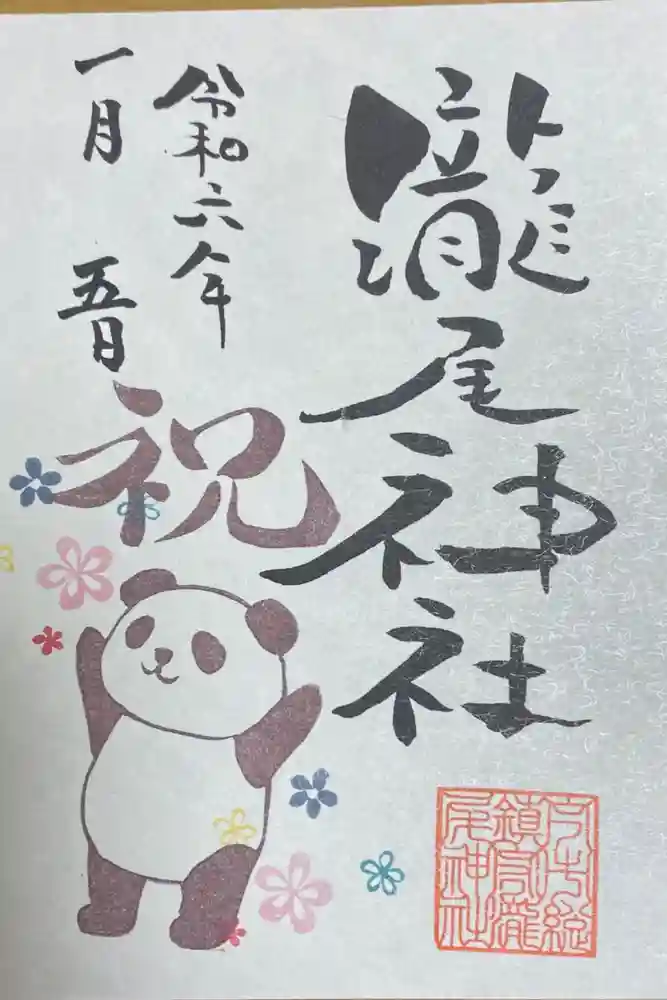 瀧尾神社
令和六年
一月 五日
祝